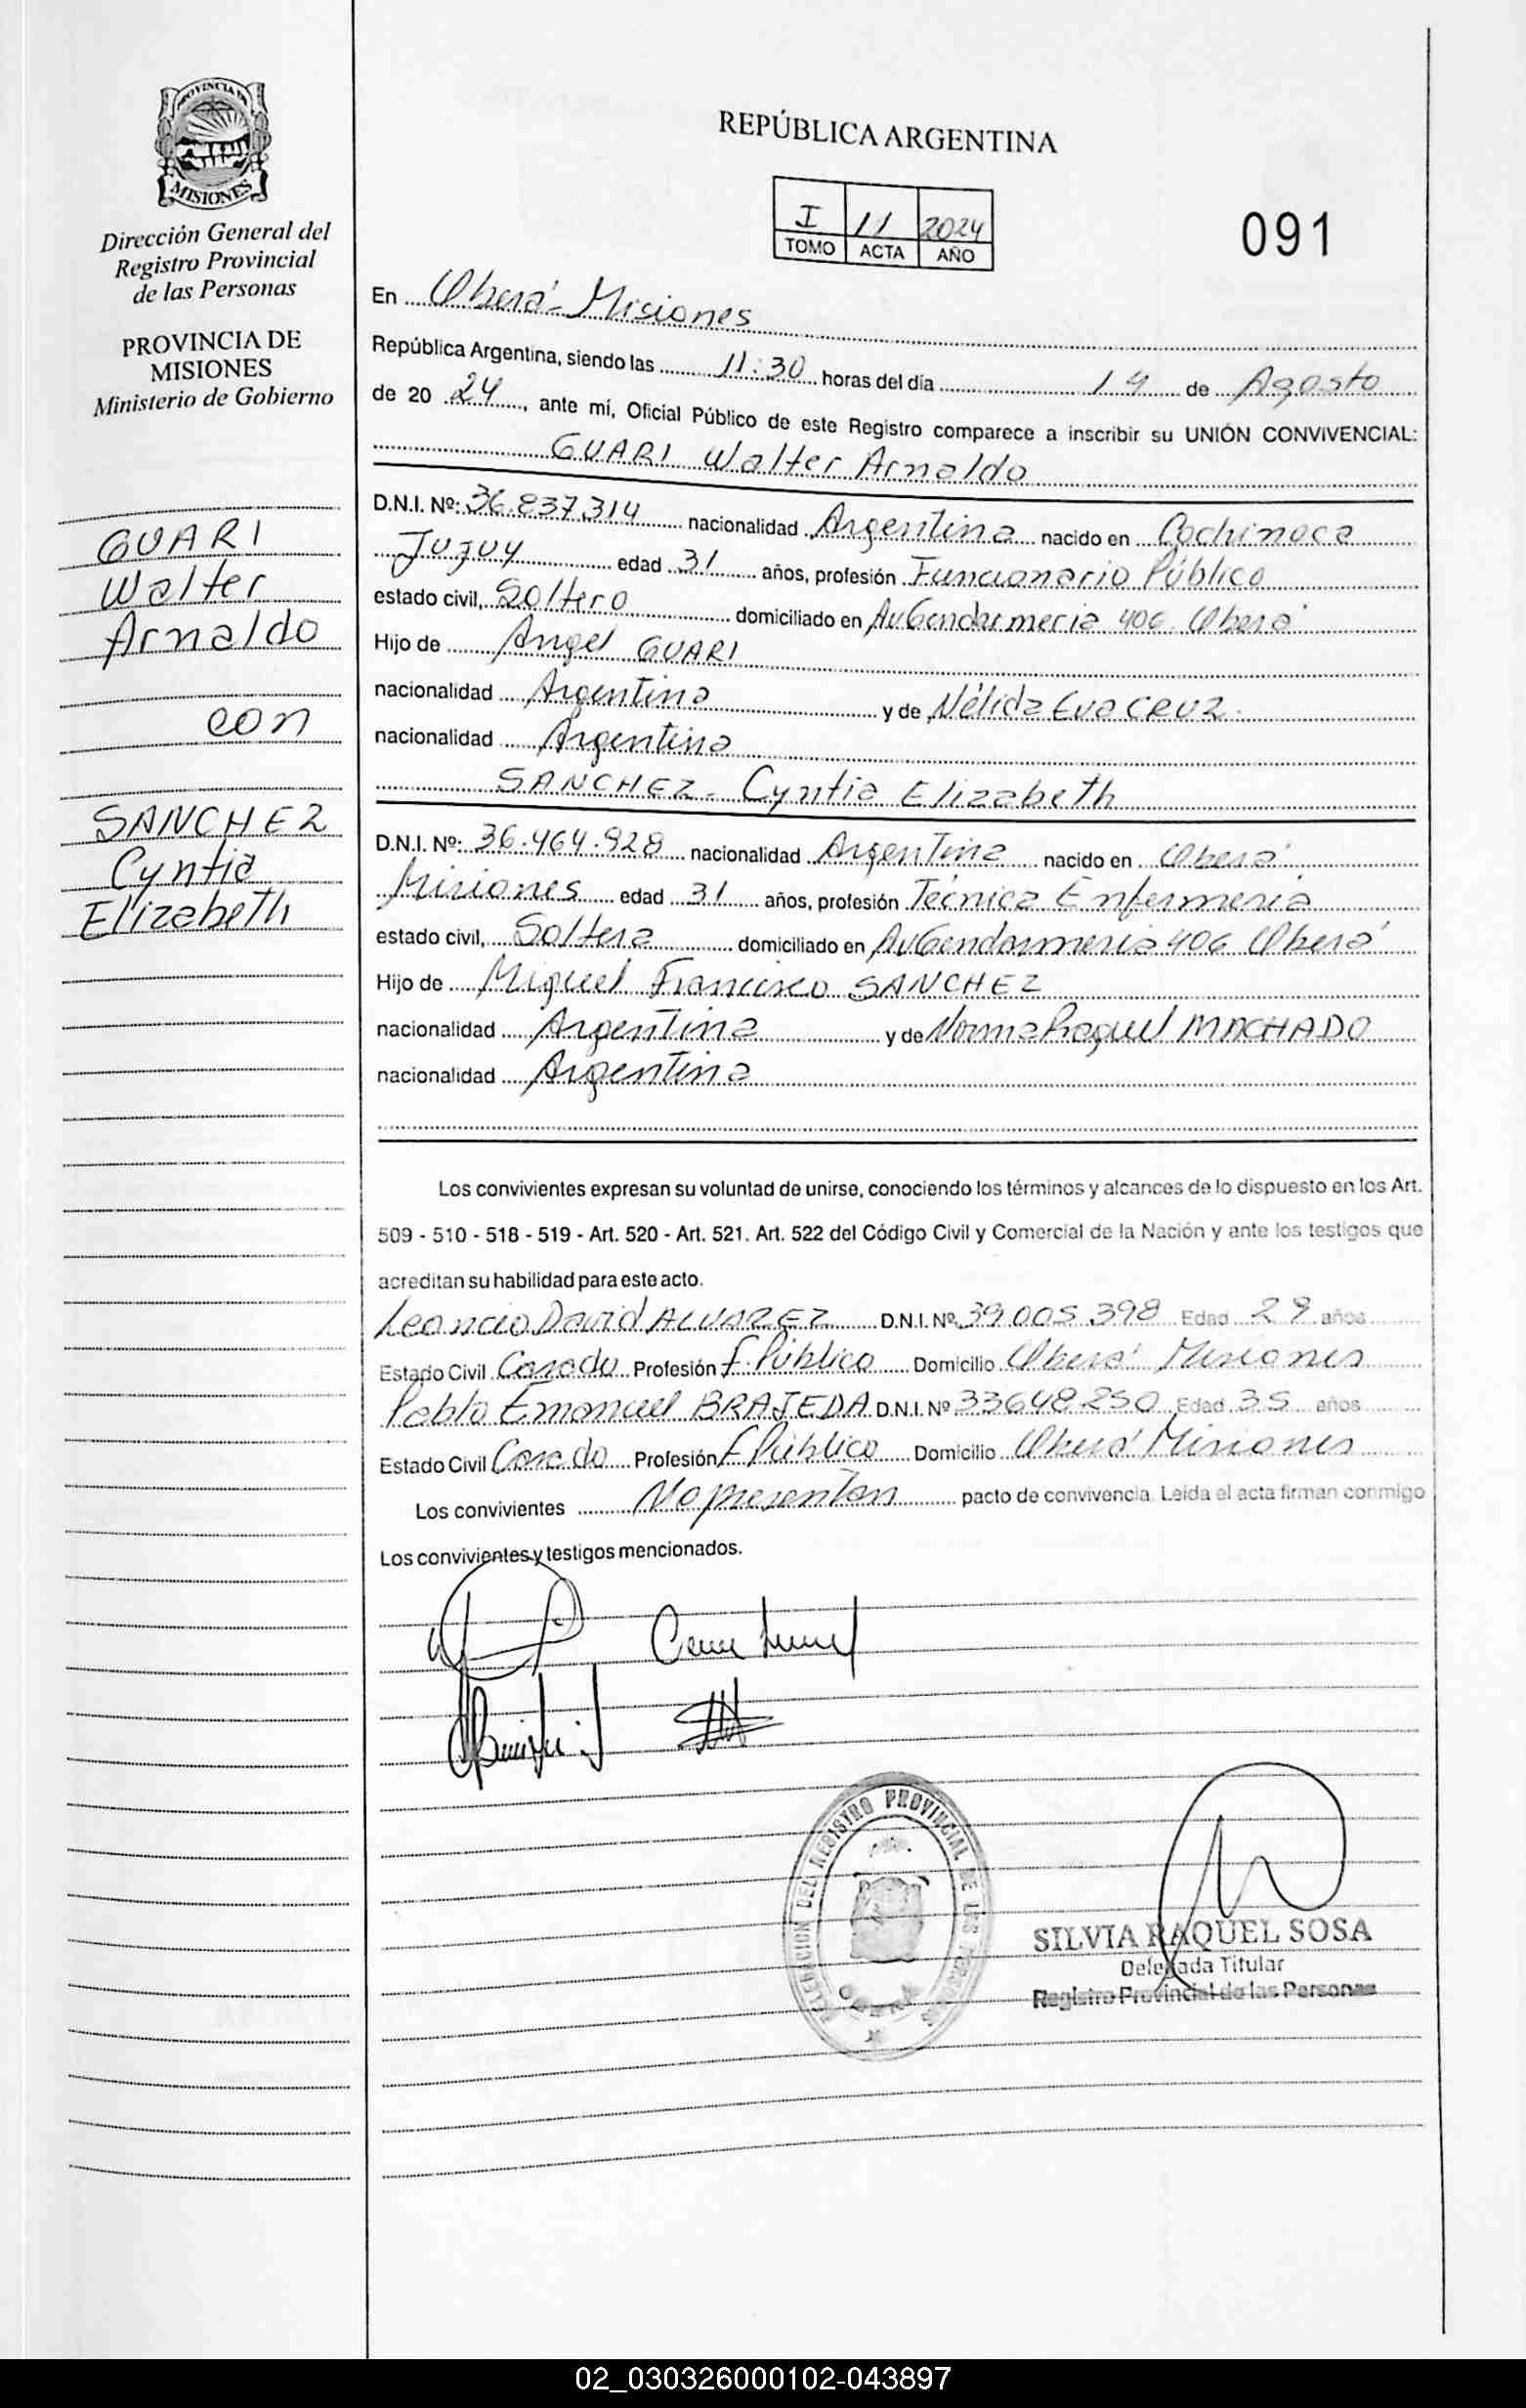 PROVINCIA DE
MISIONES
Dirección General del
Registro Provincial
de las Personas
PROVINCIA DE
MISIONES
Ministerio de Gobierno
GUARI
Walter
Arnaldo
con
SANCHEZ
Cyntia
Elizabeth
REPÚBLICA ARGENTINA
I 11 2024
TOMO ACTA AÑO
091
En Oberá - Misiones
República Argentina, siendo las 11:30 horas del día 14 de Agosto
de 20 24, ante mí, Oficial Público de este Registro comparece a inscribir su UNIÓN CONVIVENCIAL:
GUARI Walter Arnaldo
D.N.I. Nº: 36.837.314 nacionalidad Argentina nacido en Cochinoca
Jujuy edad 31 años, profesión Funcionario Público
estado civil, Soltero domiciliado en Av Gendarmeria 406 Oberá
Hijo de Angel GUARI
nacionalidad Argentina y de Nélida Eva CRUZ.
nacionalidad Argentina
SANCHEZ - Cyntia Elizabeth
D.N.I. Nº: 36.464.928 nacionalidad Argentina nacido en Oberá
Misiones edad 31 años, profesión Técnica Enfermeria
estado civil, Soltera domiciliado en Av Gendarmeria 406 Oberá
Hijo de Miguel Francisco SANCHEZ
nacionalidad Argentina y de Norma Raquel MACHADO
nacionalidad Argentina
Los convivientes expresan su voluntad de unirse, conociendo los términos y alcances de lo dispuesto en los Art.
509 - 510 - 518 - 519 - Art. 520 - Art. 521. Art. 522 del Código Civil y Comercial de la Nación y ante los testigos que
acreditan su habilidad para este acto.
Leoncio David ALVAREZ D.N.I. Nº 39.005.398 Edad 29 años
Estado Civil Casado Profesión F. Público Domicilio Oberá Misiones
Pablo Emanuel BRAJEDA D.N.I. Nº 33648250 Edad 35 años
Estado Civil Casado Profesión F Público Domicilio Oberá Misiones
Los convivientes No presentan pacto de convivencia. Leída el acta firman conmigo
Los convivientes y testigos mencionados.
DELEGACION DEL REGISTRO PROVINCIAL DE LAS PERSONAS
SILVIA RAQUEL SOSA
Delegada Titular
Registro Provincial de las Personas
02_030326000102-043897